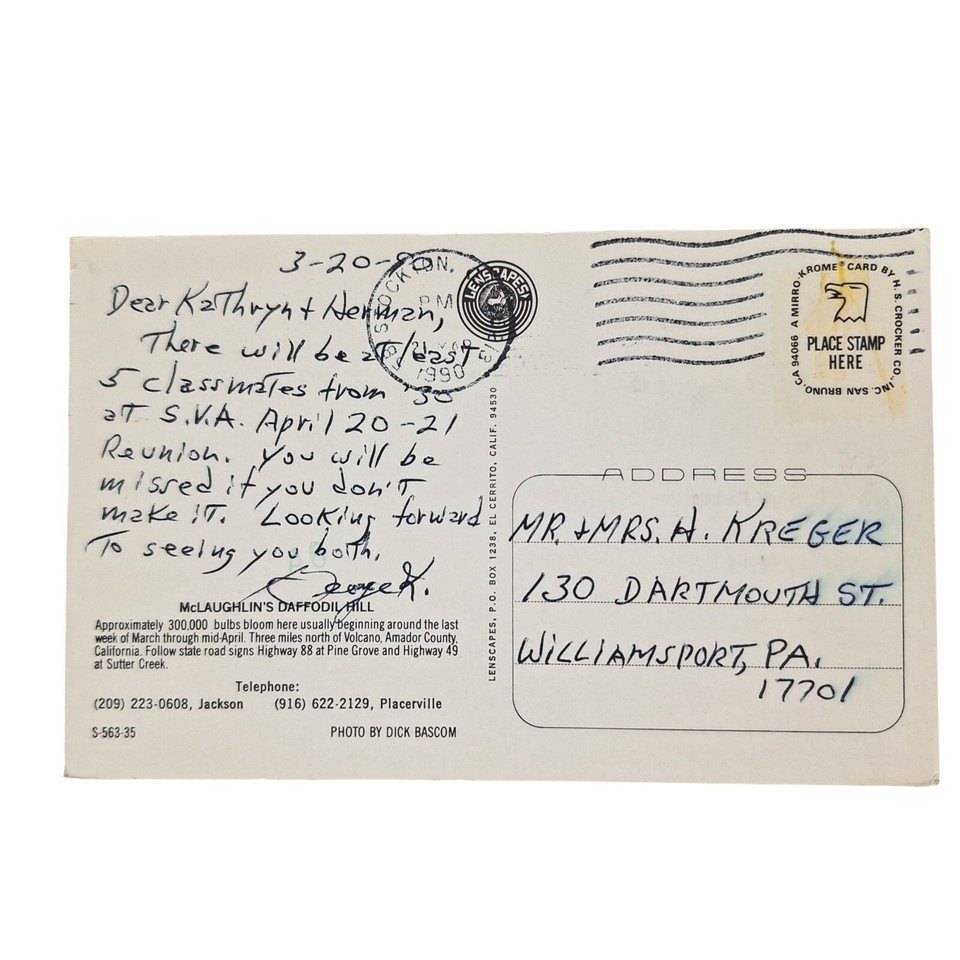 3-20-90
Dear Kathryn + Herman,
There will be at least
5 classmates from '30
at S.V.A. April 20-21
Reunion. You will be
missed if you don't
make it. Looking forward
to seeing you both.
George K.
McLAUGHLIN'S DAFFODIL HILL
Approximately 300,000 bulbs bloom here usually beginning around the last
week of March through mid-April. Three miles north of Volcano, Amador County,
California. Follow state road signs Highway 88 at Pine Grove and Highway 49
at Sutter Creek.
Telephone:
(209) 223-0608, Jackson (916) 622-2129, Placerville
S-563-35 PHOTO BY DICK BASCOM
STOCKTON,
PM
21 MAR
1990
LENSCAPES
LENSCAPES, P.O. BOX 1238, EL CERRITO, CALIF. 94530
A MIRRO-KROME® CARD BY H. S. CROCKER CO., INC. SAN BRUNO, CA 94066
PLACE STAMP
HERE
ADDRESS
MR. + MRS. H. KREGER
130 DARTMOUTH ST.
WILLIAMSPORT, PA.
17701